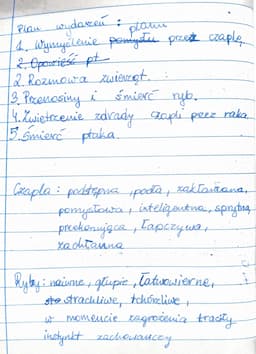 Plan wydarzeń:
1. Wymyślenie pomysłu planu przez czaplę
2. Opowieść pt
2. Rozmowa zwierząt.
3. Przenosiny i śmierć ryb.
4. Zwietrzenie zdrady czapli przez raka
5. Śmierć ptaka.
Czapla: podstępna, podła, zakłamana,
pomysłowa, inteligentna, sprytna,
przekonująca, łapczywa,
zachłanna
Ryby: naiwne, głupie, łatwowierne,
strachliwe, tchórzliwe,
w momencie zagrożenia traciły
instynkt zachowawczy